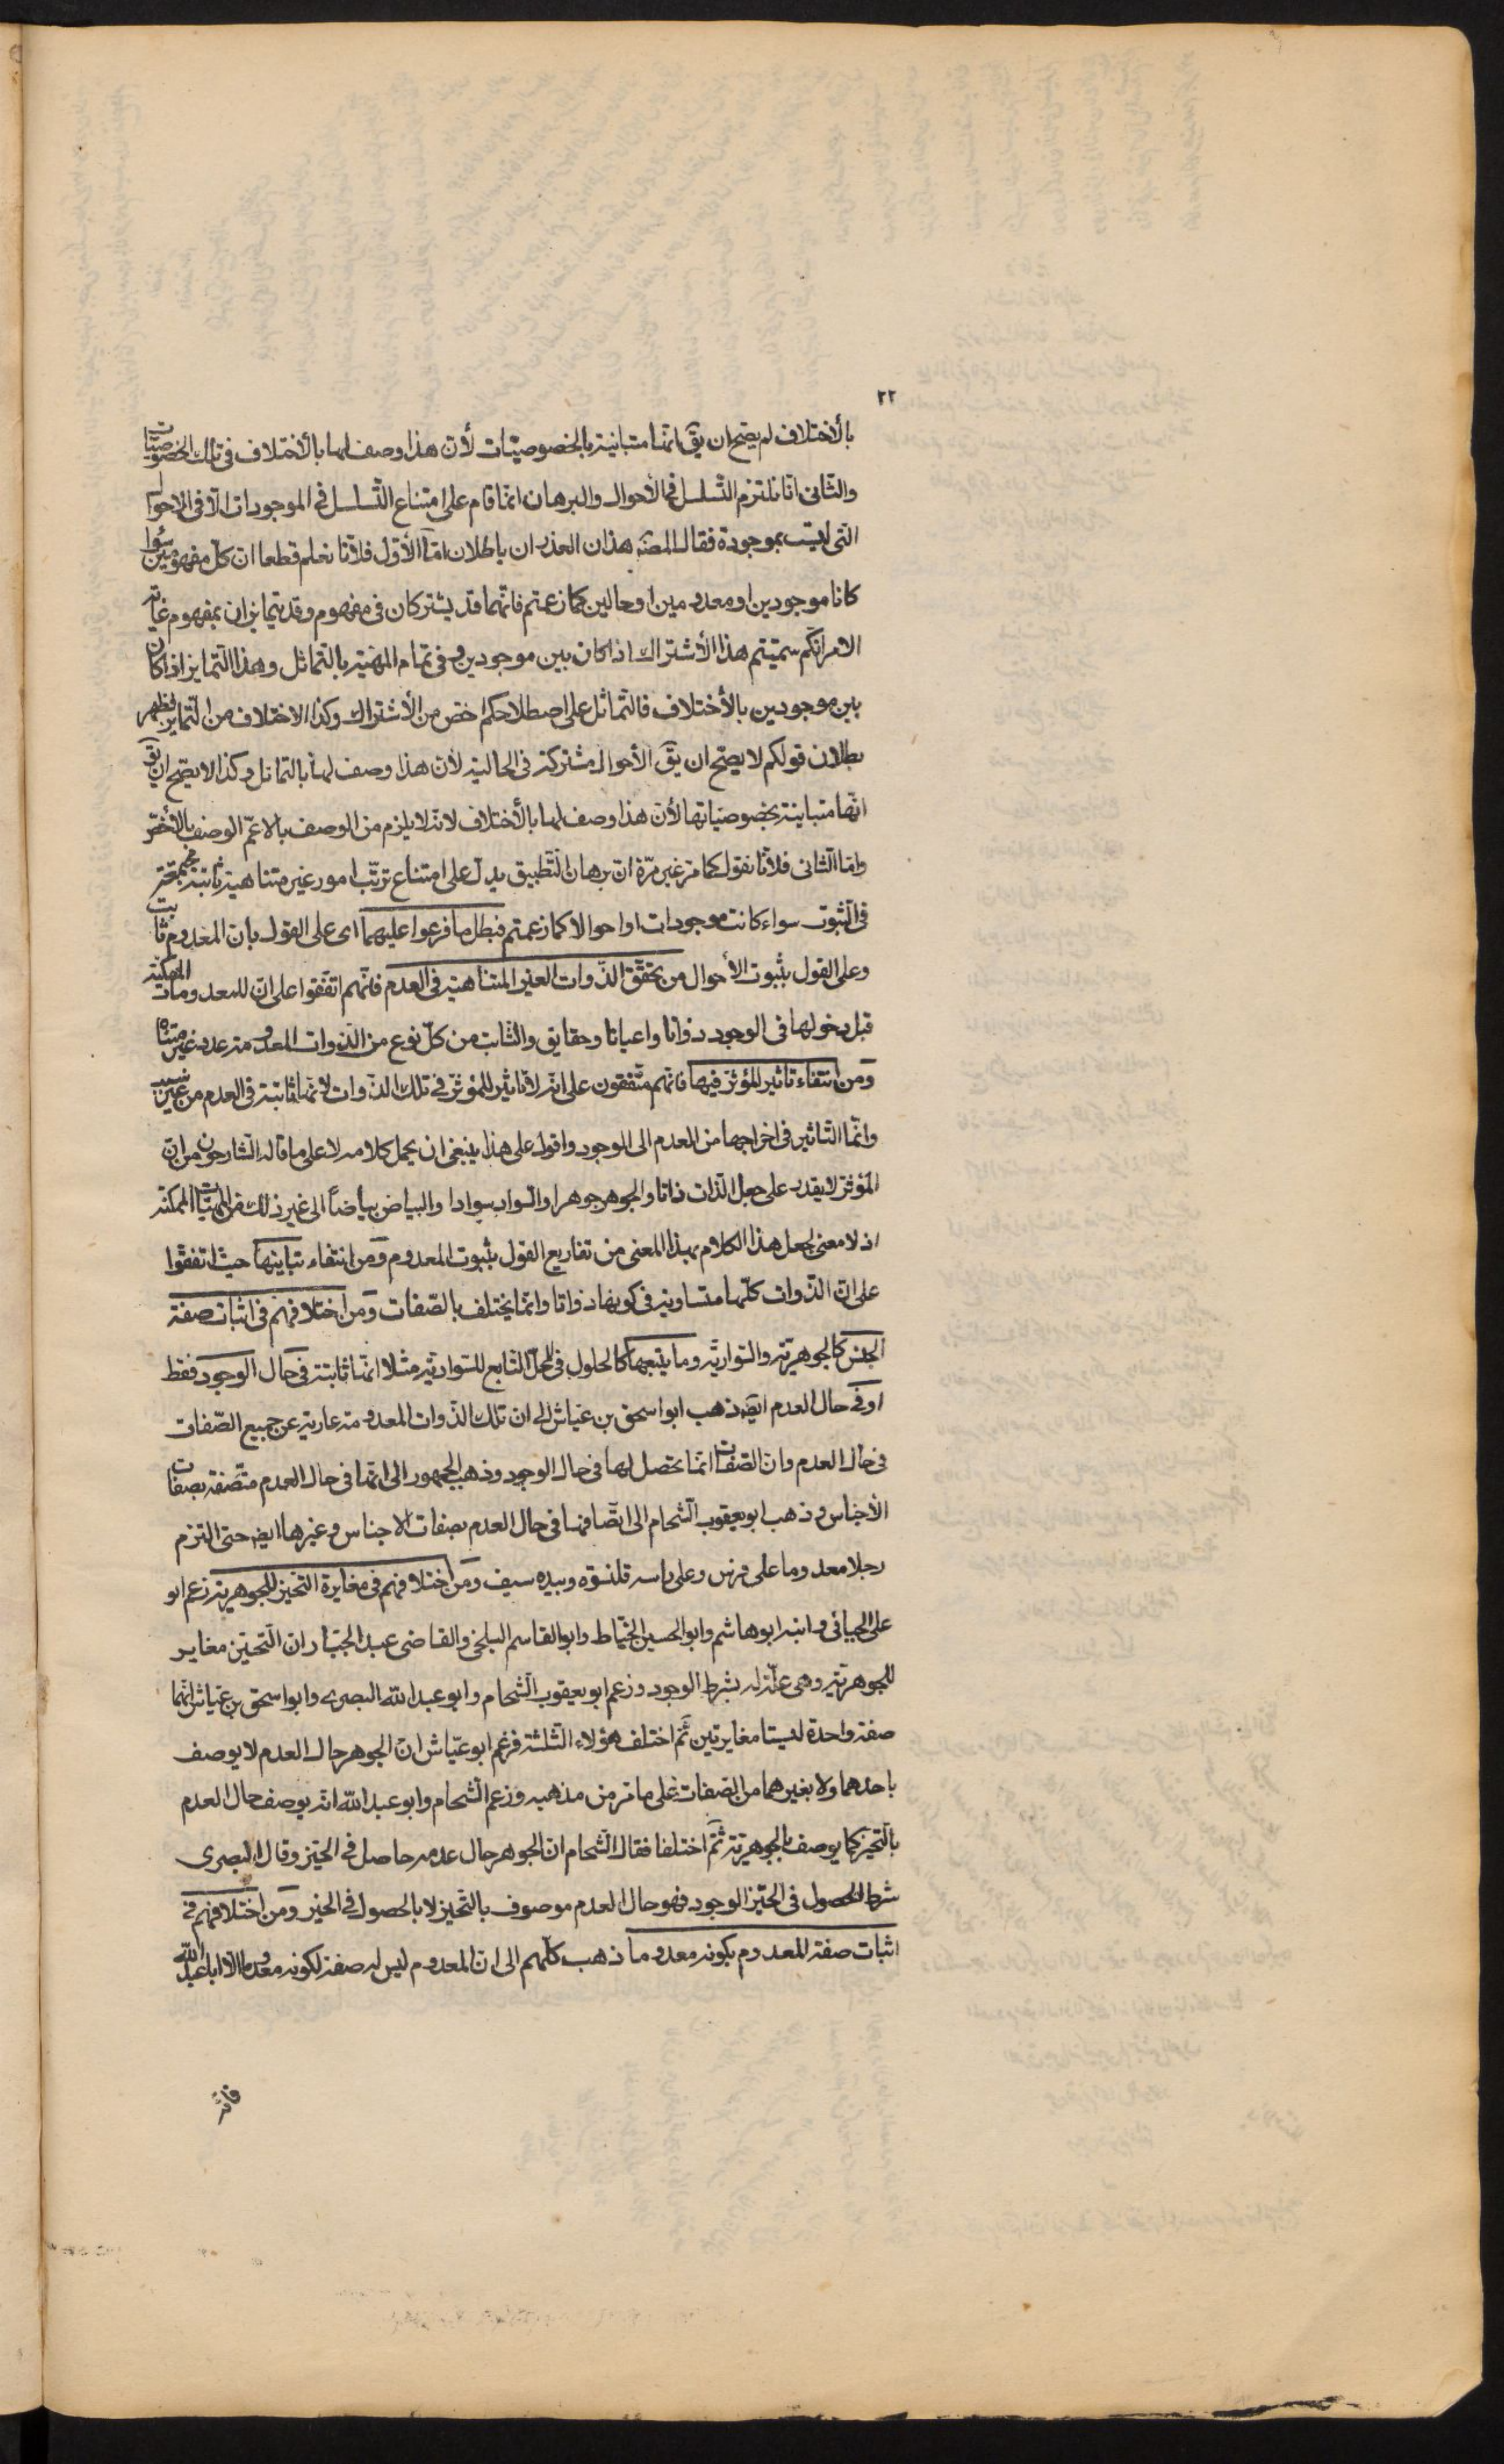 ٢٢
بالأختلاف لم يصح ان يقَ انّها متباينة بالخصوصيّات لأن هذا وصف لها بالأختلاف فى تلك الخصوصيّات
والثّانى انا نلتزم التّسلسل فى الأحوال والبرهان انّما قام على امتناع التّسلسل فى الموجودات لا فى الاحوال
التى ليست بموجودة فقال المصنّف هذان العذران باطلان امّا الأوّل فلأنّا نعلم قطعا ان كلّ مفهومين سواء
كانا موجودين او معدومين او حالين كما زعمتم فانّهما قد يشتركان فى مفهوم وقد يتمايزان بمفهوم غاية
الامر انّكم سمّيتم هذا الأشتراك اذا كان بين موجودين وفى تمام المهيّة بالتماثل وهذا التّمايز اذا كان
بين موجودين بالأختلاف فالتّماثل على اصطلاحكم اخصّ من الأشتراك وكذا الاختلاف من التّمايز فظهر
بطلان قولكم لا يصحّ ان يقَ الأحوال مشتركة فى الحالية لأن هذا وصف لها بالتماثل وكذا لا يصحّ ان يقَ
انّها متباينة بخصوصيّاتها لأن هذا وصف لها بالأختلاف لانّه لا يلزم من الوصف بالاعمّ الوصف بالأخصّ
وامّا الثّانى فلأنّا نقول كما مرّ غير مرّة ان برهان التّطبيق يدلّ على امتناع ترتّب امور غير متناهية ثابتة مجتمعة
فى الثّبوت سواء كانت موجودات او احوالا كما زعمتم فبطل ما فرعوا عليهما اى على القول بأن المعدوم ثابت
وعلى القول بثبوت الأحوال من تحقّق الذّوات الغير المتناهية فى العدم فانّهم اتّفقوا على انّ للمعدومات الممكنة
قبل دخولها فى الوجود ذواتا واعيانا وحقايق والثّابت من كلّ نوع من الذّوات المعدومة عدد غير متناه
ومن انتفاء تاثير المؤثّر فيها فانّهم متّفقون على انّه لا تاثير للمؤثّر فى تلك الذّوات لانّها ثابتة فى العدم من غير سبب
وانّما التّاثير فى اخراجها من العدم الى الوجود واقول على هذا ينبغى ان يحمل كلامه لا على ما قاله الشّارحون من انّ
المؤثّر لا يقدر على جعل الذّات ذاتا والجوهر جوهرا والسّواد سوادا والبياض بياضاً الى غير ذلك من المهيّات الممكنة
اذ لا معنى لجعل هذا الكلام بهذا المعنى من تفاريع القول بثبوت المعدوم ومن انتفاء تباينها حيث اتفقوا
على انّ الذّوات كلّها متساوية فى كونها ذواتا وانّما يختلف بالصّفات ومن اختلافهم فى اثبات صفة
الجنس كالجوهريّة والسّواديّة وما يتبعها كالحلول فى المحلّ التّابع للسّواديّة مثلا انّها ثابتة فى حال الوجود فقط
او فى حال العدم ايضَ ذهب ابو اسحق بن عيّاش الى ان تلك الذّوات المعدومة عارية عن جميع الصّفات
فى حال العدم وان الصّفات انّما تحصل لها فى حال الوجود وذهب الجمهور الى انّها فى حال العدم متّصفة بصفات
الأجناس وذهب ابو يعقوب الشّحام الى اتّصافها فى حال العدم بصفات الاجناس وغيرها ايضَ حتى التزم
رجلا معدوما على فرس وعلى راسه قلنسوة وبيده سيف ومن اختلافهم فى مغايرة التحيّز للجوهرية زعم ابو
على الجبائى وابنه ابو هاشم وابو الحسين الخيّاط وابو القاسم البلخى والقاضى عبد الجبّار ان التّحيّز مغاير
للجوهريّة وهى علّة له بشرط الوجود وزعم ابو يعقوب الشّحام وابو عبد الله البصرى وابو اسحق بن عيّاش انّهما
صفة واحدة ليستا مغايرتين ثمّ اختلف هؤلاء الثّلثة فزعم ابو عيّاش انّ الجوهر حال العدم لا يوصف
باحدهما ولا بغيرهما من الصّفات على ما مرّ من مذهبه وزعم الشّحام وابو عبد الله انّه يوصف حال العدم
بالتّحيّز كما يوصف بالجوهريّة ثمّ اختلفا فقال الشّحام ان الجوهر حال عدمه حاصل فى الحيّز وقال البصرى
شرط الحصول فى الحيّز الوجود فهو حال العدم موصوف بالتّحيز لا بالحصول فى الحيز ومن اختلافهم فى
اثبات صفة المعدوم بكونه معدوما ذهب كلّهم الى ان المعدوم ليس له صفة لكونه معدوما الّا ابا عبد الله